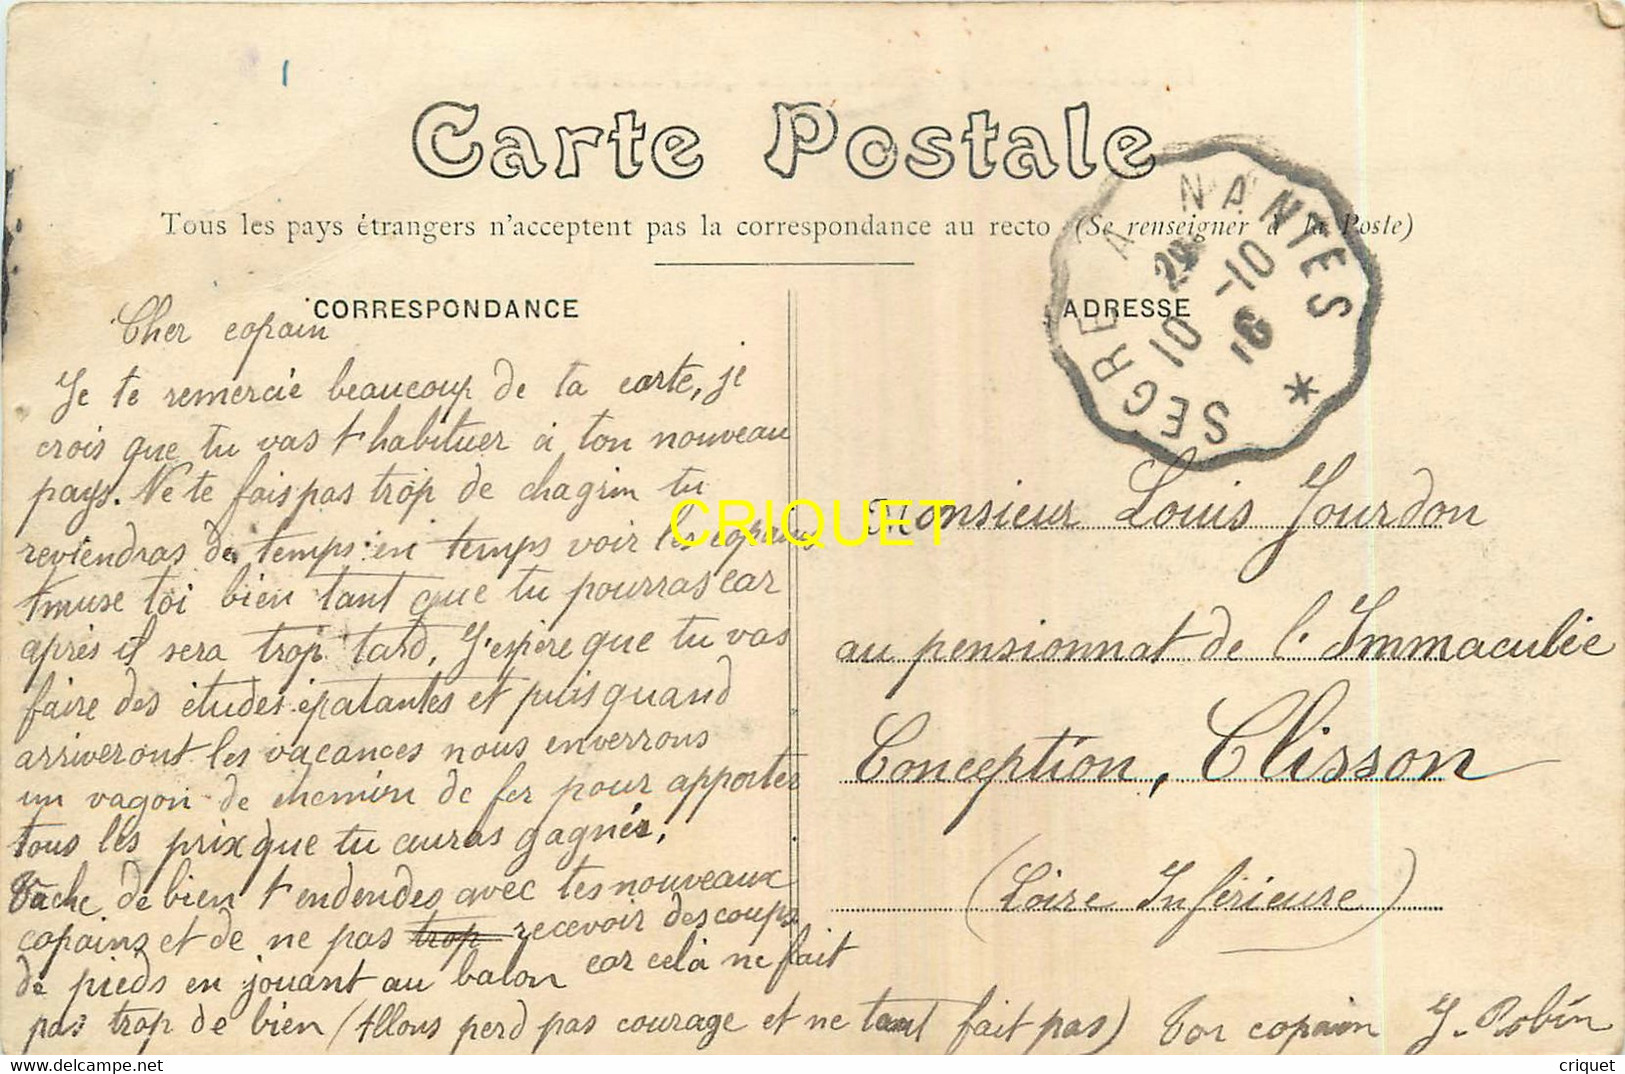 Carte Postale
Tous les pays étrangers n'acceptent pas la correspondance au recto (Se renseigner à la Poste)
CORRESPONDANCE
Cher copain
Je te remercie beaucoup de ta carte, je
crois que tu vas t'habituer à ton nouveau
pays. Ne te fais pas trop de chagrin tu
reviendras de temps en temps voir les copains
Amuse toi bien tant que tu pourras car
après il sera trop tard. J'espère que tu vas
faire des études épatantes et puis quand
arriveront les vacances nous enverrons
un vagon de chemin de fer pour apporter
tous les prix que tu auras gagnés.
Tache de bien t'endendes avec tes nouveaux
copains et de ne pas trop recevoir des coups
de pieds en jouant au balon car celà ne fait
pas trop de bien (Allons perd pas courage et ne tant fait pas) Ton copain J. Robin
ADRESSE
Monsieur Louis Jourdon
au pensionnat de l'Immaculée
Conception, Clisson
(Loire Inférieure)
SEGRE A NANTES *
10 -10
10 16
CRIQUET
criquet
delcampe.net